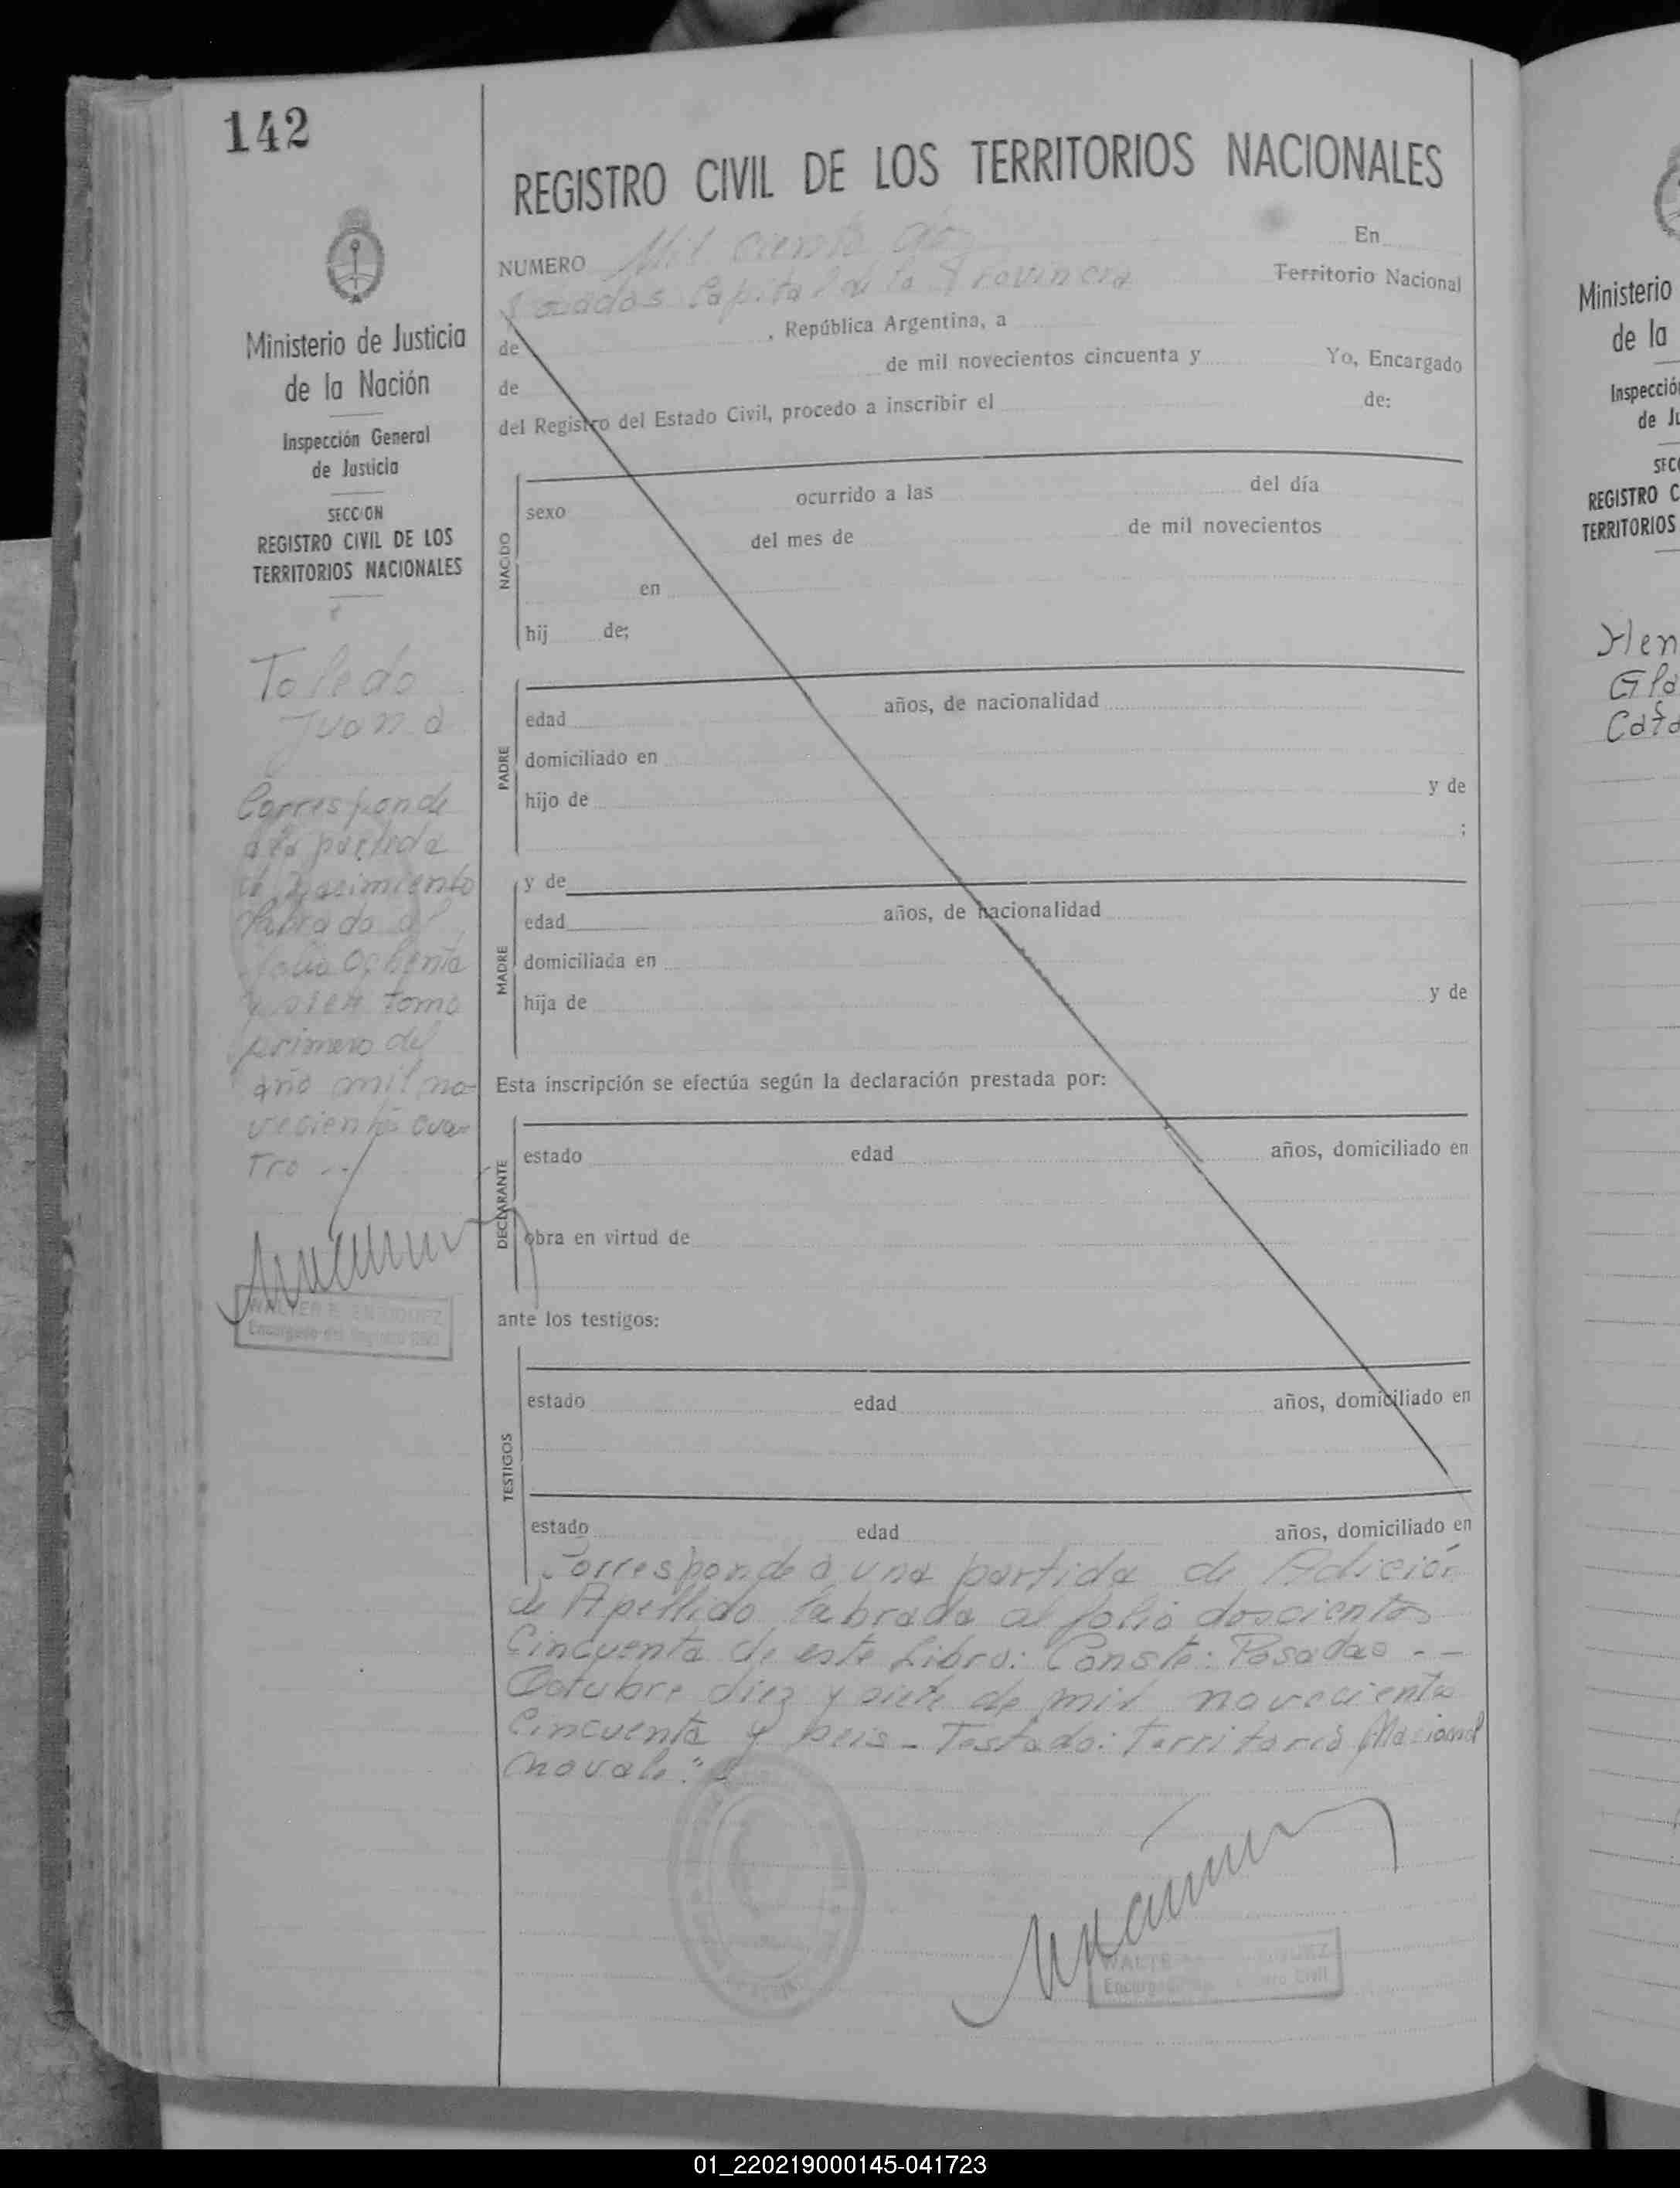 142
REGISTRO CIVIL DE LOS TERRITORIOS NACIONALES
NUMERO Mil ciento En
Posadas Capital de la Provincia Territorio Nacional
de , República Argentina, a
de de mil novecientos cincuenta y Yo, Encargado
del Registro del Estado Civil, procedo a inscribir el de:
Ministerio de Justicia
de la Nación
Inspección General
de Justicia
SECCION
REGISTRO CIVIL DE LOS
TERRITORIOS NACIONALES
Toledo
Juana
Corresponde
a la partida
de Nacimiento
labrada al
folio Ochenta
y tomo
primero del
año mil no-
vecientos cua-
tro --
WALTER
Encargado del Registro Civil
NACIDO
sexo ocurrido a las del día
del mes de de mil novecientos
en
hij de;
PADRE
edad años, de nacionalidad
domiciliado en
hijo de y de
;
MADRE
y de
edad años, de nacionalidad
domiciliada en
hija de y de
Esta inscripción se efectúa según la declaración prestada por:
DECLARANTE
estado edad años, domiciliado en
obra en virtud de
ante los testigos:
TESTIGOS
estado edad años, domiciliado en
estado edad años, domiciliado en
Corresponde a una partida de Adición
de Apellido labrada al folio doscientos
Cincuenta de este Libro: Conste: Posadas - -
Octubre diez y siete de mil novecientos
Cincuenta y seis - Testado: Territorio Nacional
WALTE
Encarg tro Civil
Ministerio
de la
Inspección
de Ju
SECC
REGISTRO C
TERRITORIOS
Hen
Gla
Cata
01_220219000145-041723